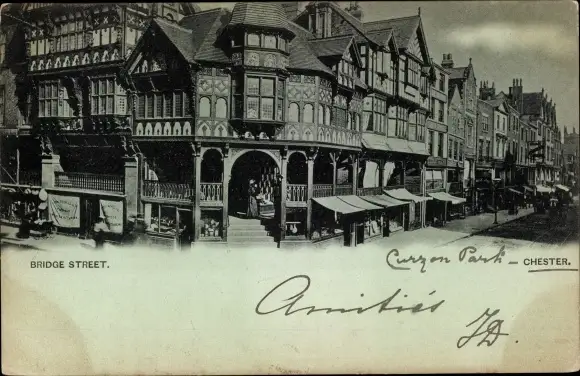 BRIDGE STREET.
Curzon Park – CHESTER.
Amitiés
JD